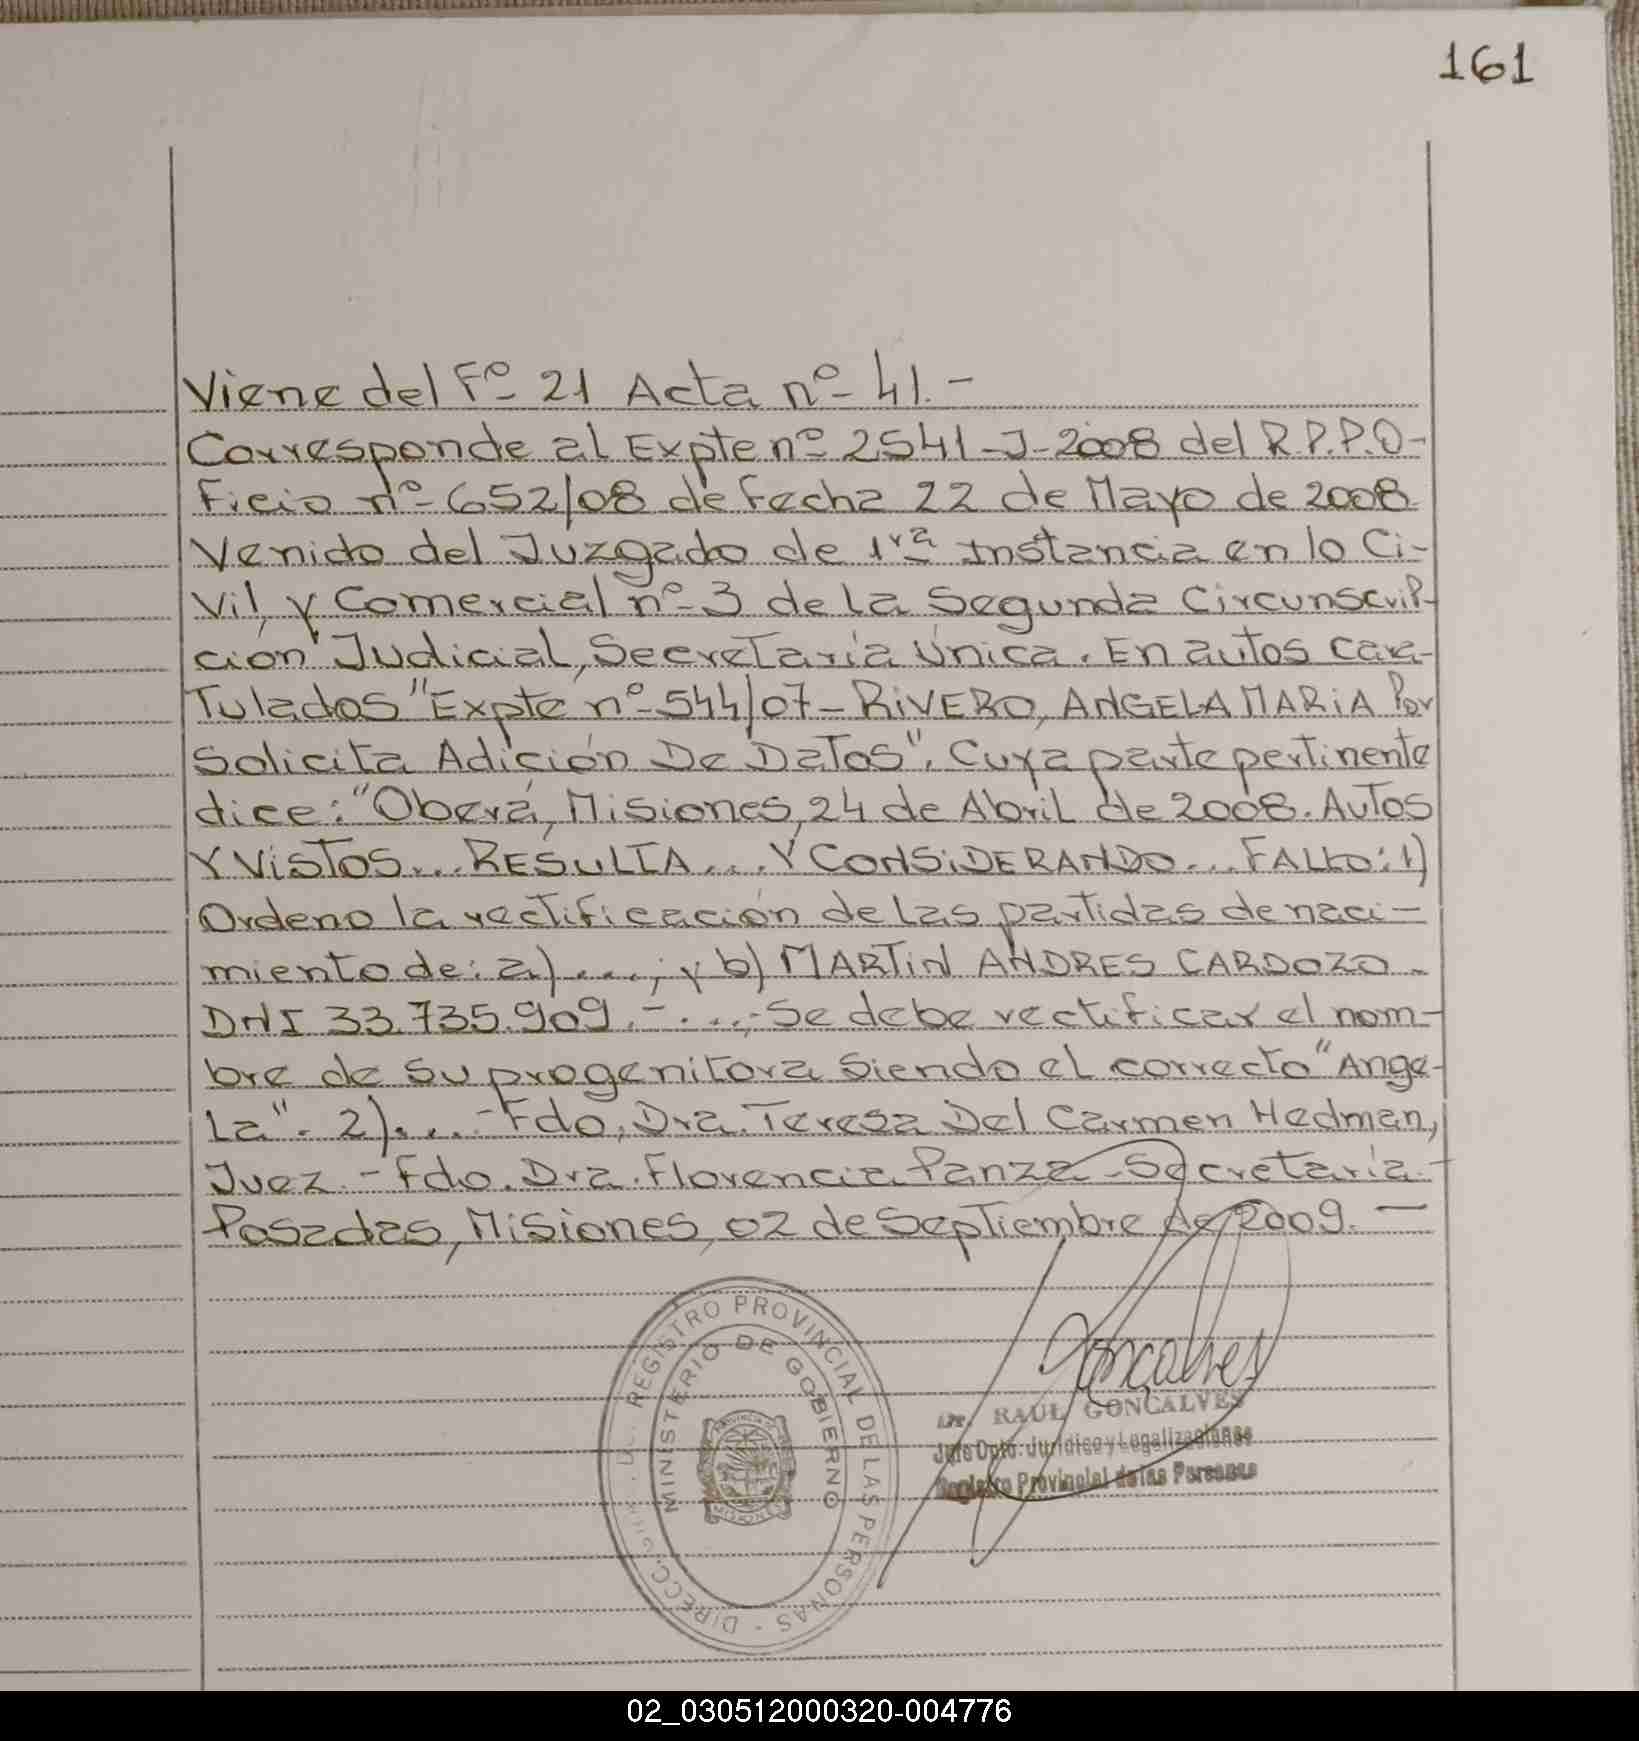 161
Viene del Fº 21 Acta nº 41.-
Corresponde al Expte nº 2541-J-2008 del R.P.P.O-
ficio nº 652/08 de fecha 22 de Mayo de 2008.
Venido del Juzgado de 1ra Instancia en lo Ci-
vil, y Comercial nº 3 de la Segunda Circunscrip-
ción Judicial, Secretaría Única. En autos cara-
tulados "Expte nº 544/07 - RIVERO, ANGELA MARIA Por
Solicita Adición De Datos". Cuya parte pertinente
dice: "Oberá, Misiones, 24 de Abril de 2008. AUTOS
Y VISTOS... RESULTA.... Y CONSIDERANDO... FALLO: 1)
Ordeno la rectificación de las partidas de naci-
miento de: a)....; y b) MARTIN ANDRES CARDOZO -
DNI 33.735.909.-...;- Se debe rectificar el nom-
bre de su progenitora siendo el correcto "Ange-
la". 2)....- Fdo, Dra. Teresa Del Carmen Hedman,
Juez. - Fdo. Dra. Florencia Panza - Secretaria.-
Posadas, Misiones, 02 de Septiembre de 2009.-
REGISTRO PROVINCIAL DE LAS PERSONAS -
MINISTERIO DE GOBIERNO
PROVINCIA DE
MISIONES
Goncalves
Dr. RAUL GONCALVES
Jefe Dpto. Jurídico y Legalizaciones
Registro Provincial de las Personas
02_030512000320-004776